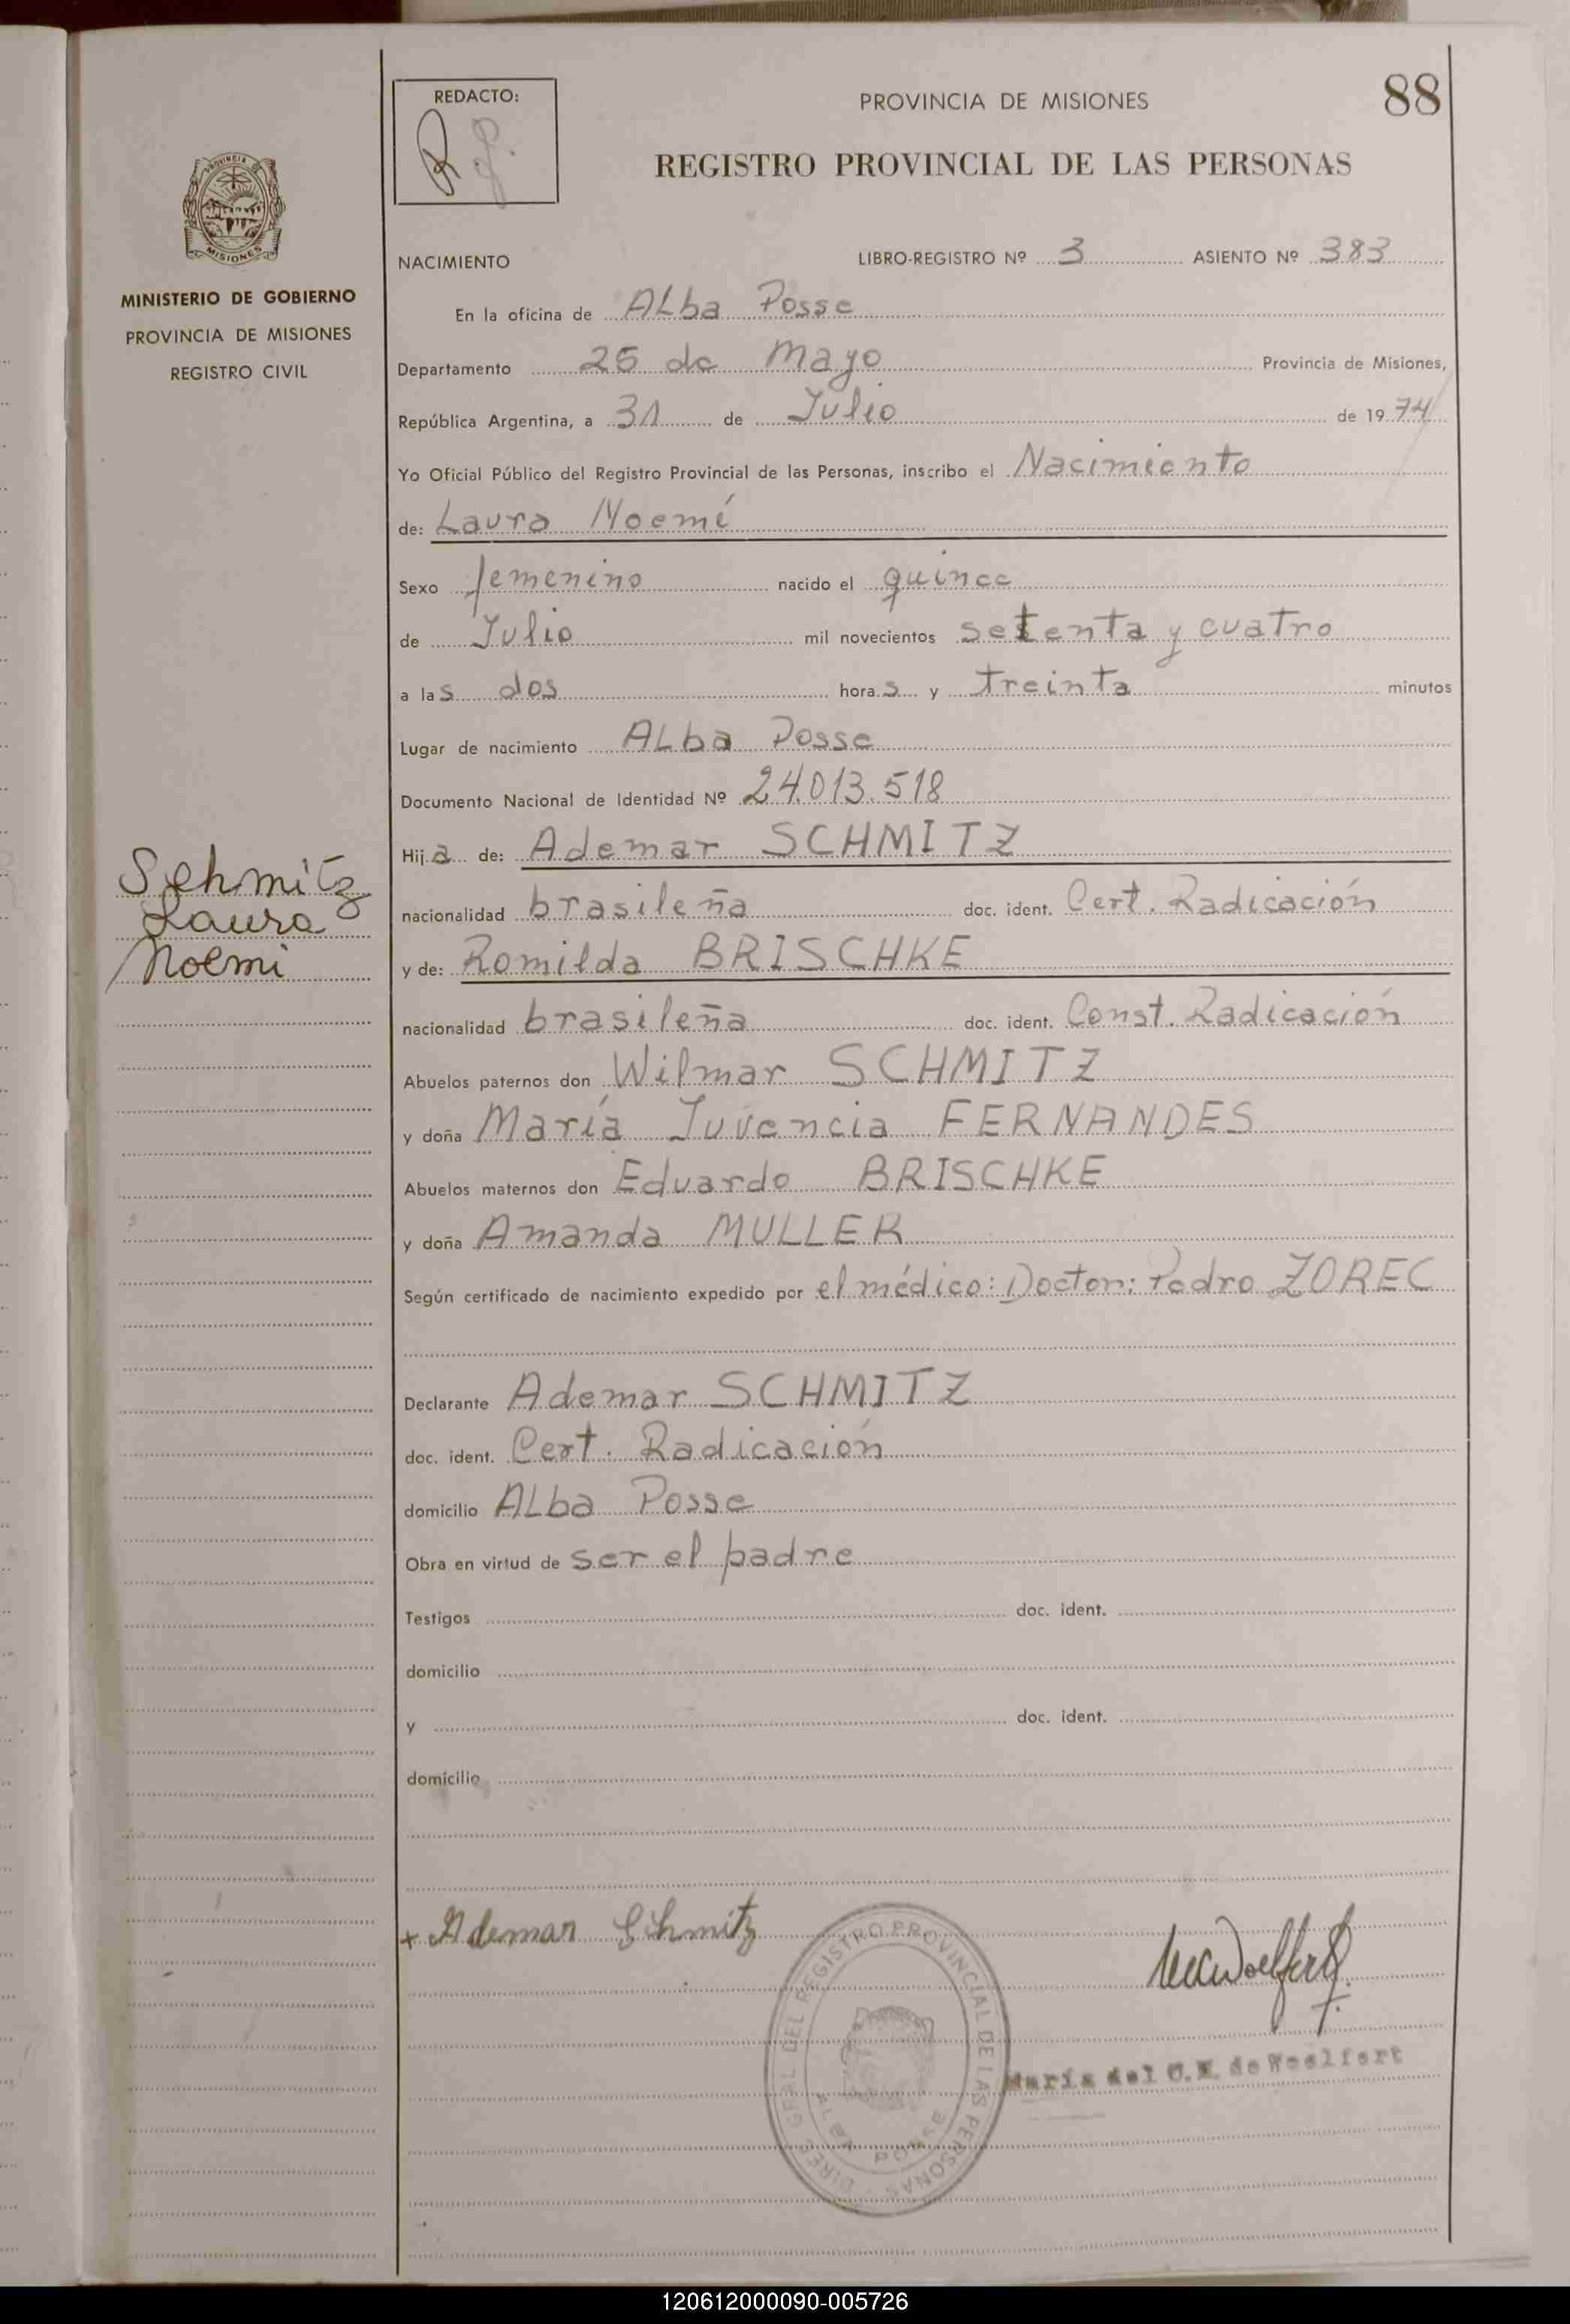 REDACTO:
PROVINCIA DE MISIONES
88
REGISTRO PROVINCIAL DE LAS PERSONAS
PROVINCIA DE
MISIONES
MINISTERIO DE GOBIERNO
PROVINCIA DE MISIONES
REGISTRO CIVIL
NACIMIENTO LIBRO-REGISTRO Nº 3 ASIENTO Nº 383
En la oficina de Alba Posse
Departamento 25 de Mayo Provincia de Misiones,
República Argentina, a 31 de Julio de 1974
Yo Oficial Público del Registro Provincial de las Personas, inscribo el Nacimiento
de: Laura Noemí
Sexo femenino nacido el quince
de Julio mil novecientos setenta y cuatro
a las dos horas y treinta minutos
Lugar de nacimiento Alba Posse
Documento Nacional de Identidad Nº 24.013.518
Hija de: Ademar SCHMITZ
nacionalidad brasileña doc. ident. Cert. Radicación
y de: Romilda BRISCHKE
nacionalidad brasileña doc. ident. Const. Radicación
Abuelos paternos don Wilmar SCHMITZ
y doña María Juvencia FERNANDES
Abuelos maternos don Eduardo BRISCHKE
y doña Amanda MULLER
Según certificado de nacimiento expedido por el médico: Doctor: Pedro ZOREC
Declarante Ademar SCHMITZ
doc. ident. Cert. Radicación
domicilio Alba Posse
Obra en virtud de ser el padre
Testigos doc. ident.
domicilio
y doc. ident.
domicilio
Schmitz
Laura
Noemi
+ Ademar Schmitz
DIREC. GRAL DEL REGISTRO PROVINCIAL DE LAS PERSONAS
ALBA POSSE
María del C. de Woelfert
120612000090-005726